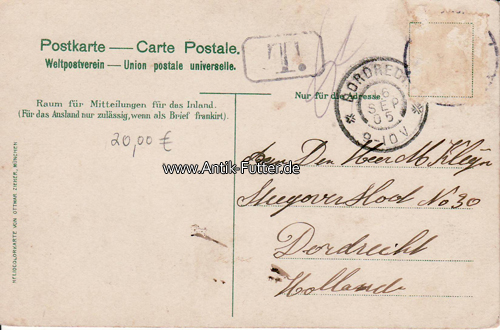 Postkarte — Carte Postale.
Weltpostverein — Union postale universelle.
T.
DORDRECHT
6
SEP
05
9-10V
Nur für die Adresse.
Raum für Mitteilungen für das Inland.
(Für das Ausland nur zulässig, wenn als Brief frankirt).
20,00 €
www.Antik-Futter.de
Den Heer M. Kleyn
Steegoversloot No 30
Dordrecht
Holland
HELIOCOLORKARTE VON OTTMAR ZIEHER, MÜNCHEN